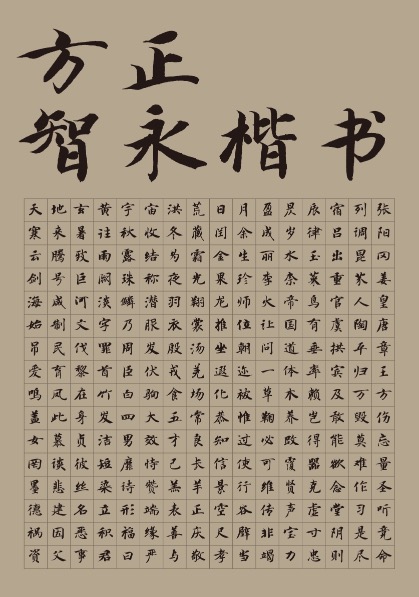 方正
智永楷书
天地玄黄宇宙洪荒日月盈昃辰宿列张
寒来暑往秋收冬藏闰余成岁律吕调阳
云腾致雨露结为霜金生丽水玉出昆冈
剑号巨阙珠称夜光果珍李柰菜重芥姜
海咸河淡鳞潜羽翔龙师火帝鸟官人皇
始制文字乃服衣裳推位让国有虞陶唐
吊民伐罪周发殷汤坐朝问道垂拱平章
爱育黎首臣伏戎羌遐迩一体率宾归王
鸣凤在竹白驹食场化被草木赖及万方
盖此身发四大五常恭惟鞠养岂敢毁伤
女慕贞洁男效才良知过必改得能莫忘
罔谈彼短靡恃己长信使可覆器欲难量
墨悲丝染诗赞羔羊景行维贤克念作圣
德建名立形端表正空谷传声虚堂习听
祸因恶积福缘善庆尺璧非宝寸阴是竞
资父事君曰严与敬孝当竭力忠则尽命